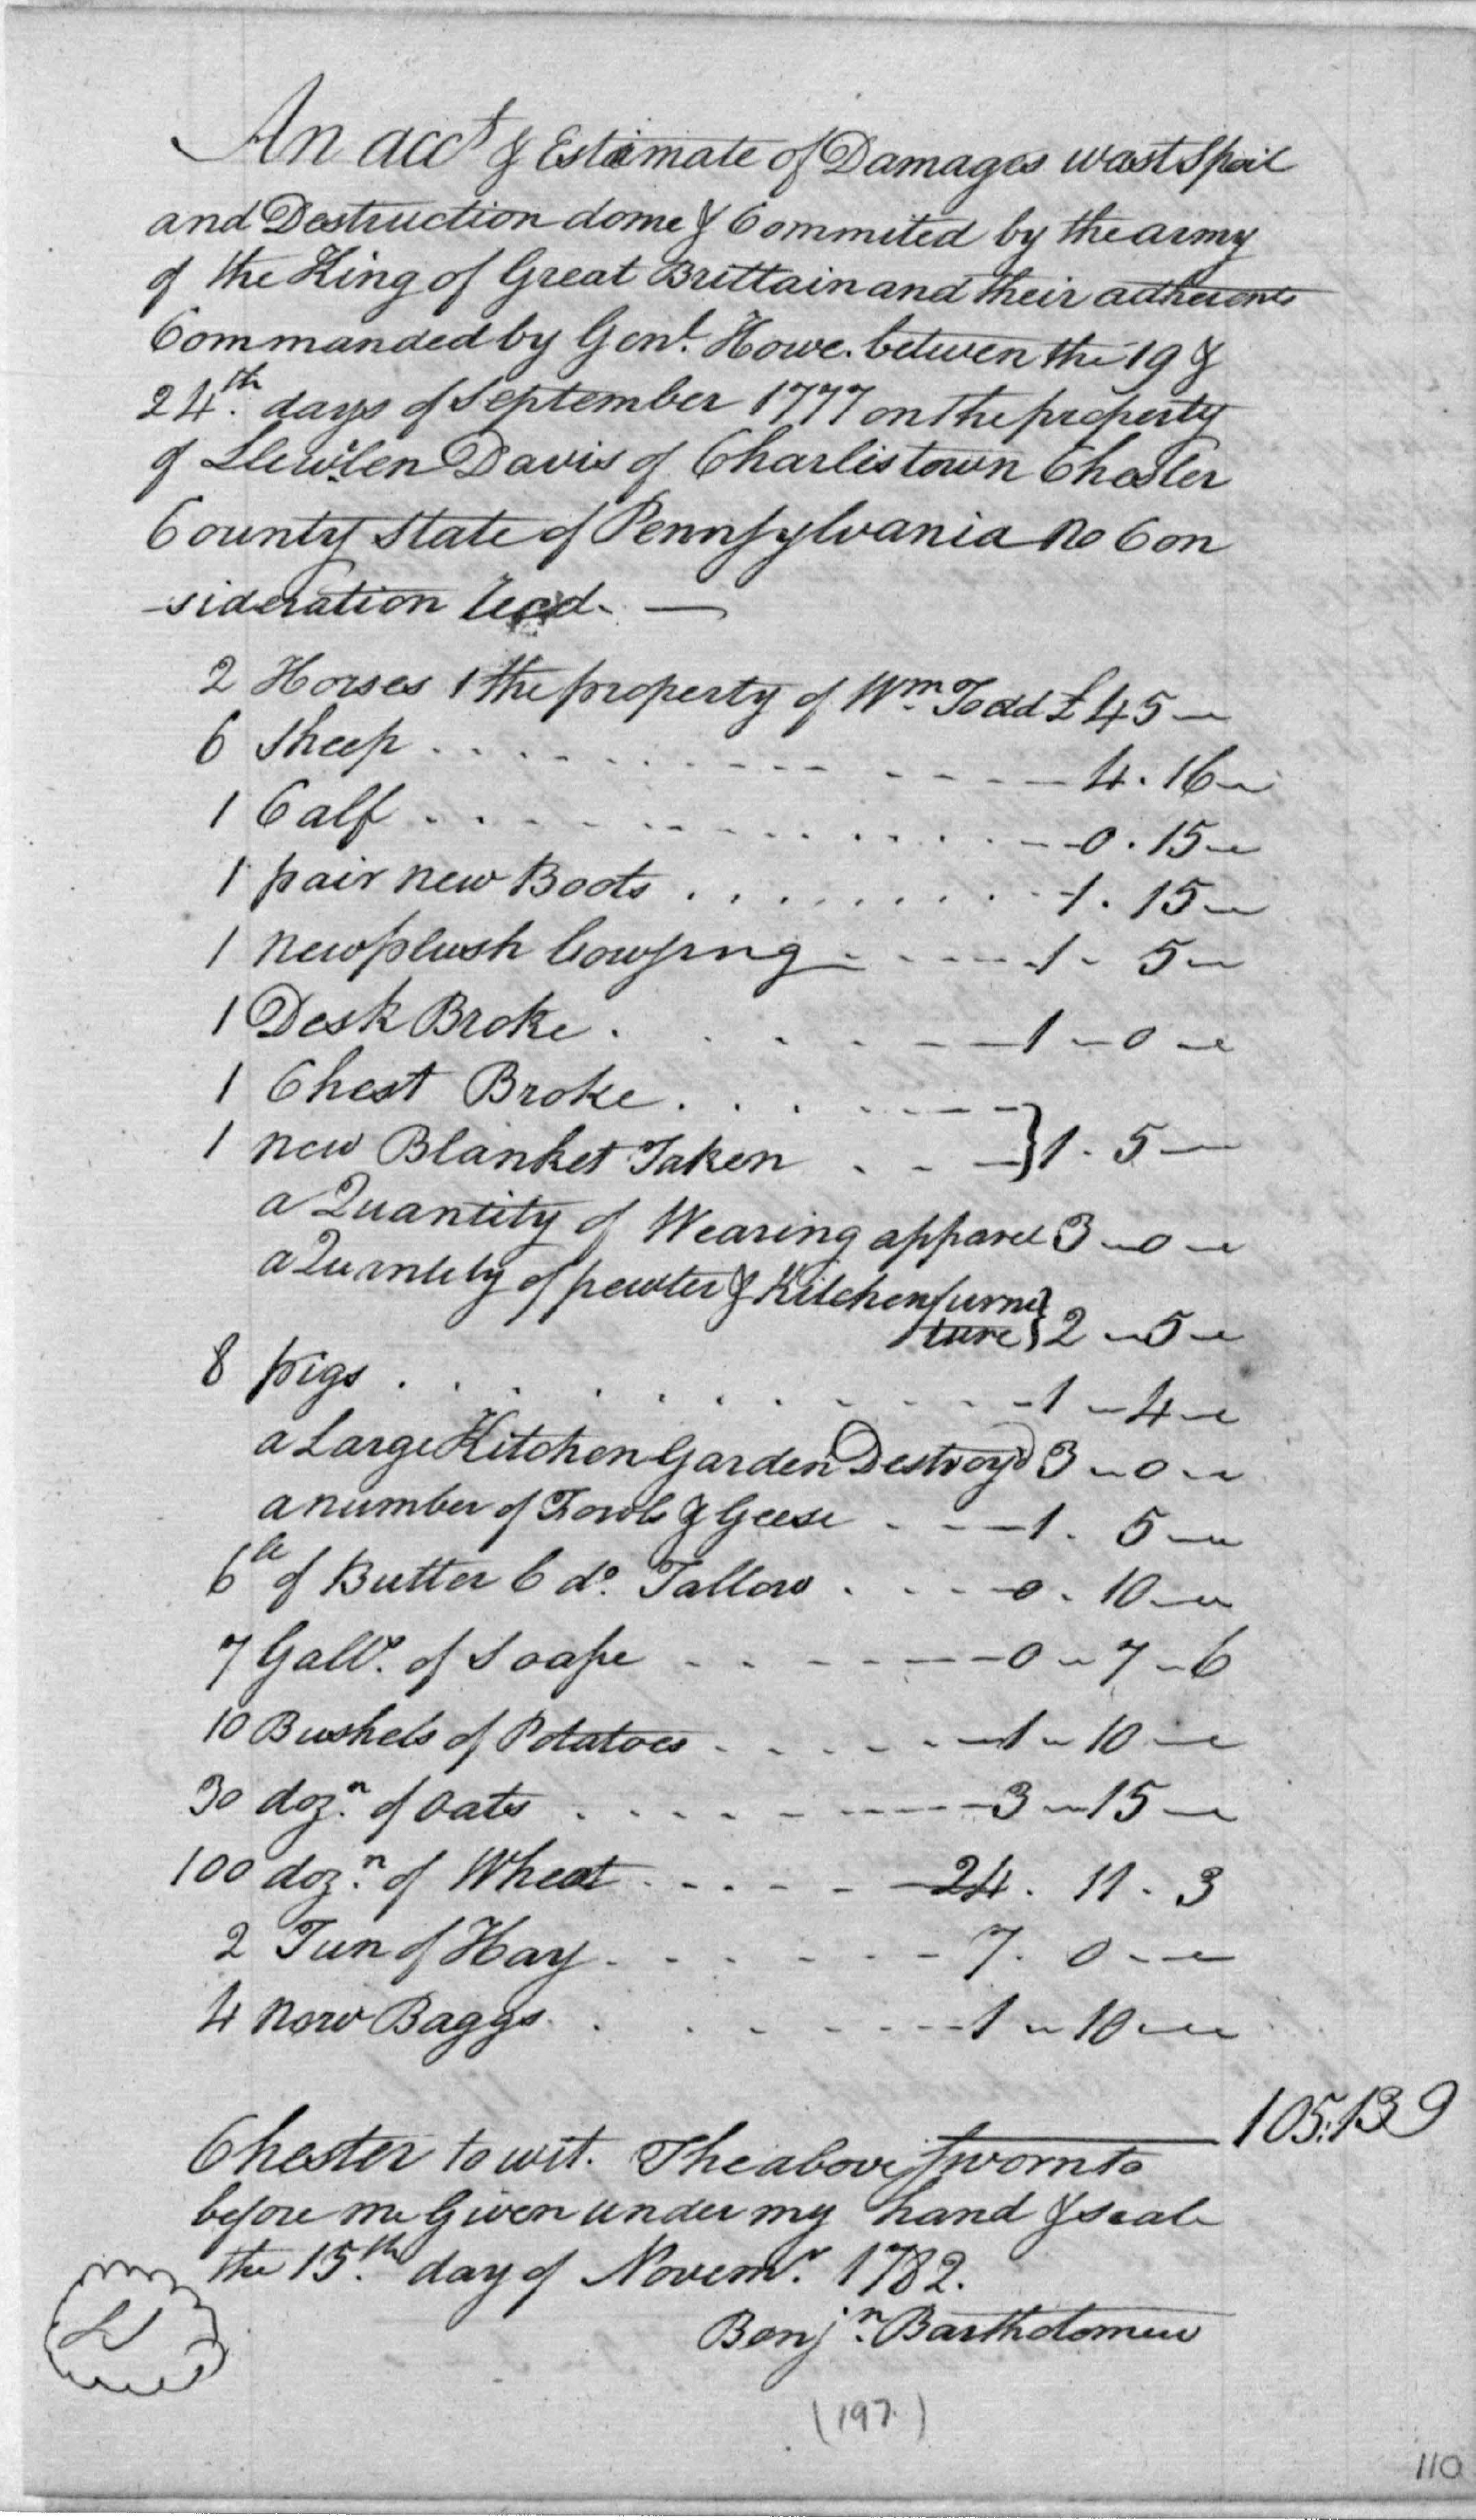 An acct & Estimate of Damages wast Spoil
and Destruction dome & Commited by the army
of the King of Great Brittain and their adherents
Commanded by Genl. Howe. betwen the 19 &
24th. days of September 1777 on the property
of Llewilen Davis of Charlistown Chester
County State of Pennsylvania No Con
-sideration Recd. —
2 Horses 1 the property of Wm. Todd £ 45 —
6 Sheep . . . . . 4 . 16 —
1 Calf . . . . . 0 . 15 —
1 pair new Boots . . . . . 1 . 15 —
1 new plush - - - - 1 - 5 —
1 Desk Broke . . . . . 1 - 0 —
1 Chest Broke . . . . .
1 new Blanket Taken . . - } 1 . 5 —
a Quantity of Wearing apparel 3 - 0 —
a Quantity of pewter & Kitchen furni
ture } 2 - 5 —
8 pigs . . . . . 1 - 4 —
a Large Kitchen Garden Destroyd 3 - 0 —
a number of Fowls & Geese . - - 1 . 5 —
6 lb of Butter 6 do. Tallow . - - 0 . 10 —
7 Galls. of Soape - - - - 0 - 7 - 6
10 Bushels of Potatoes . - - - 1 - 10 —
30 dozn. of Oats . . . . 3 - 15 —
100 dozn. of Wheat . - - - 24 . 11 . 3
2 Tun of Hay . - - - 7 . 0 —
4 New Baggs . . - - - 1 - 10 —
105:13 9
Chester to wit. The above Sworn to
before me Given under my hand & seale
the 15th. day of Novemr. 1782.
LS
Benjn. Bartholomew
(197)
110